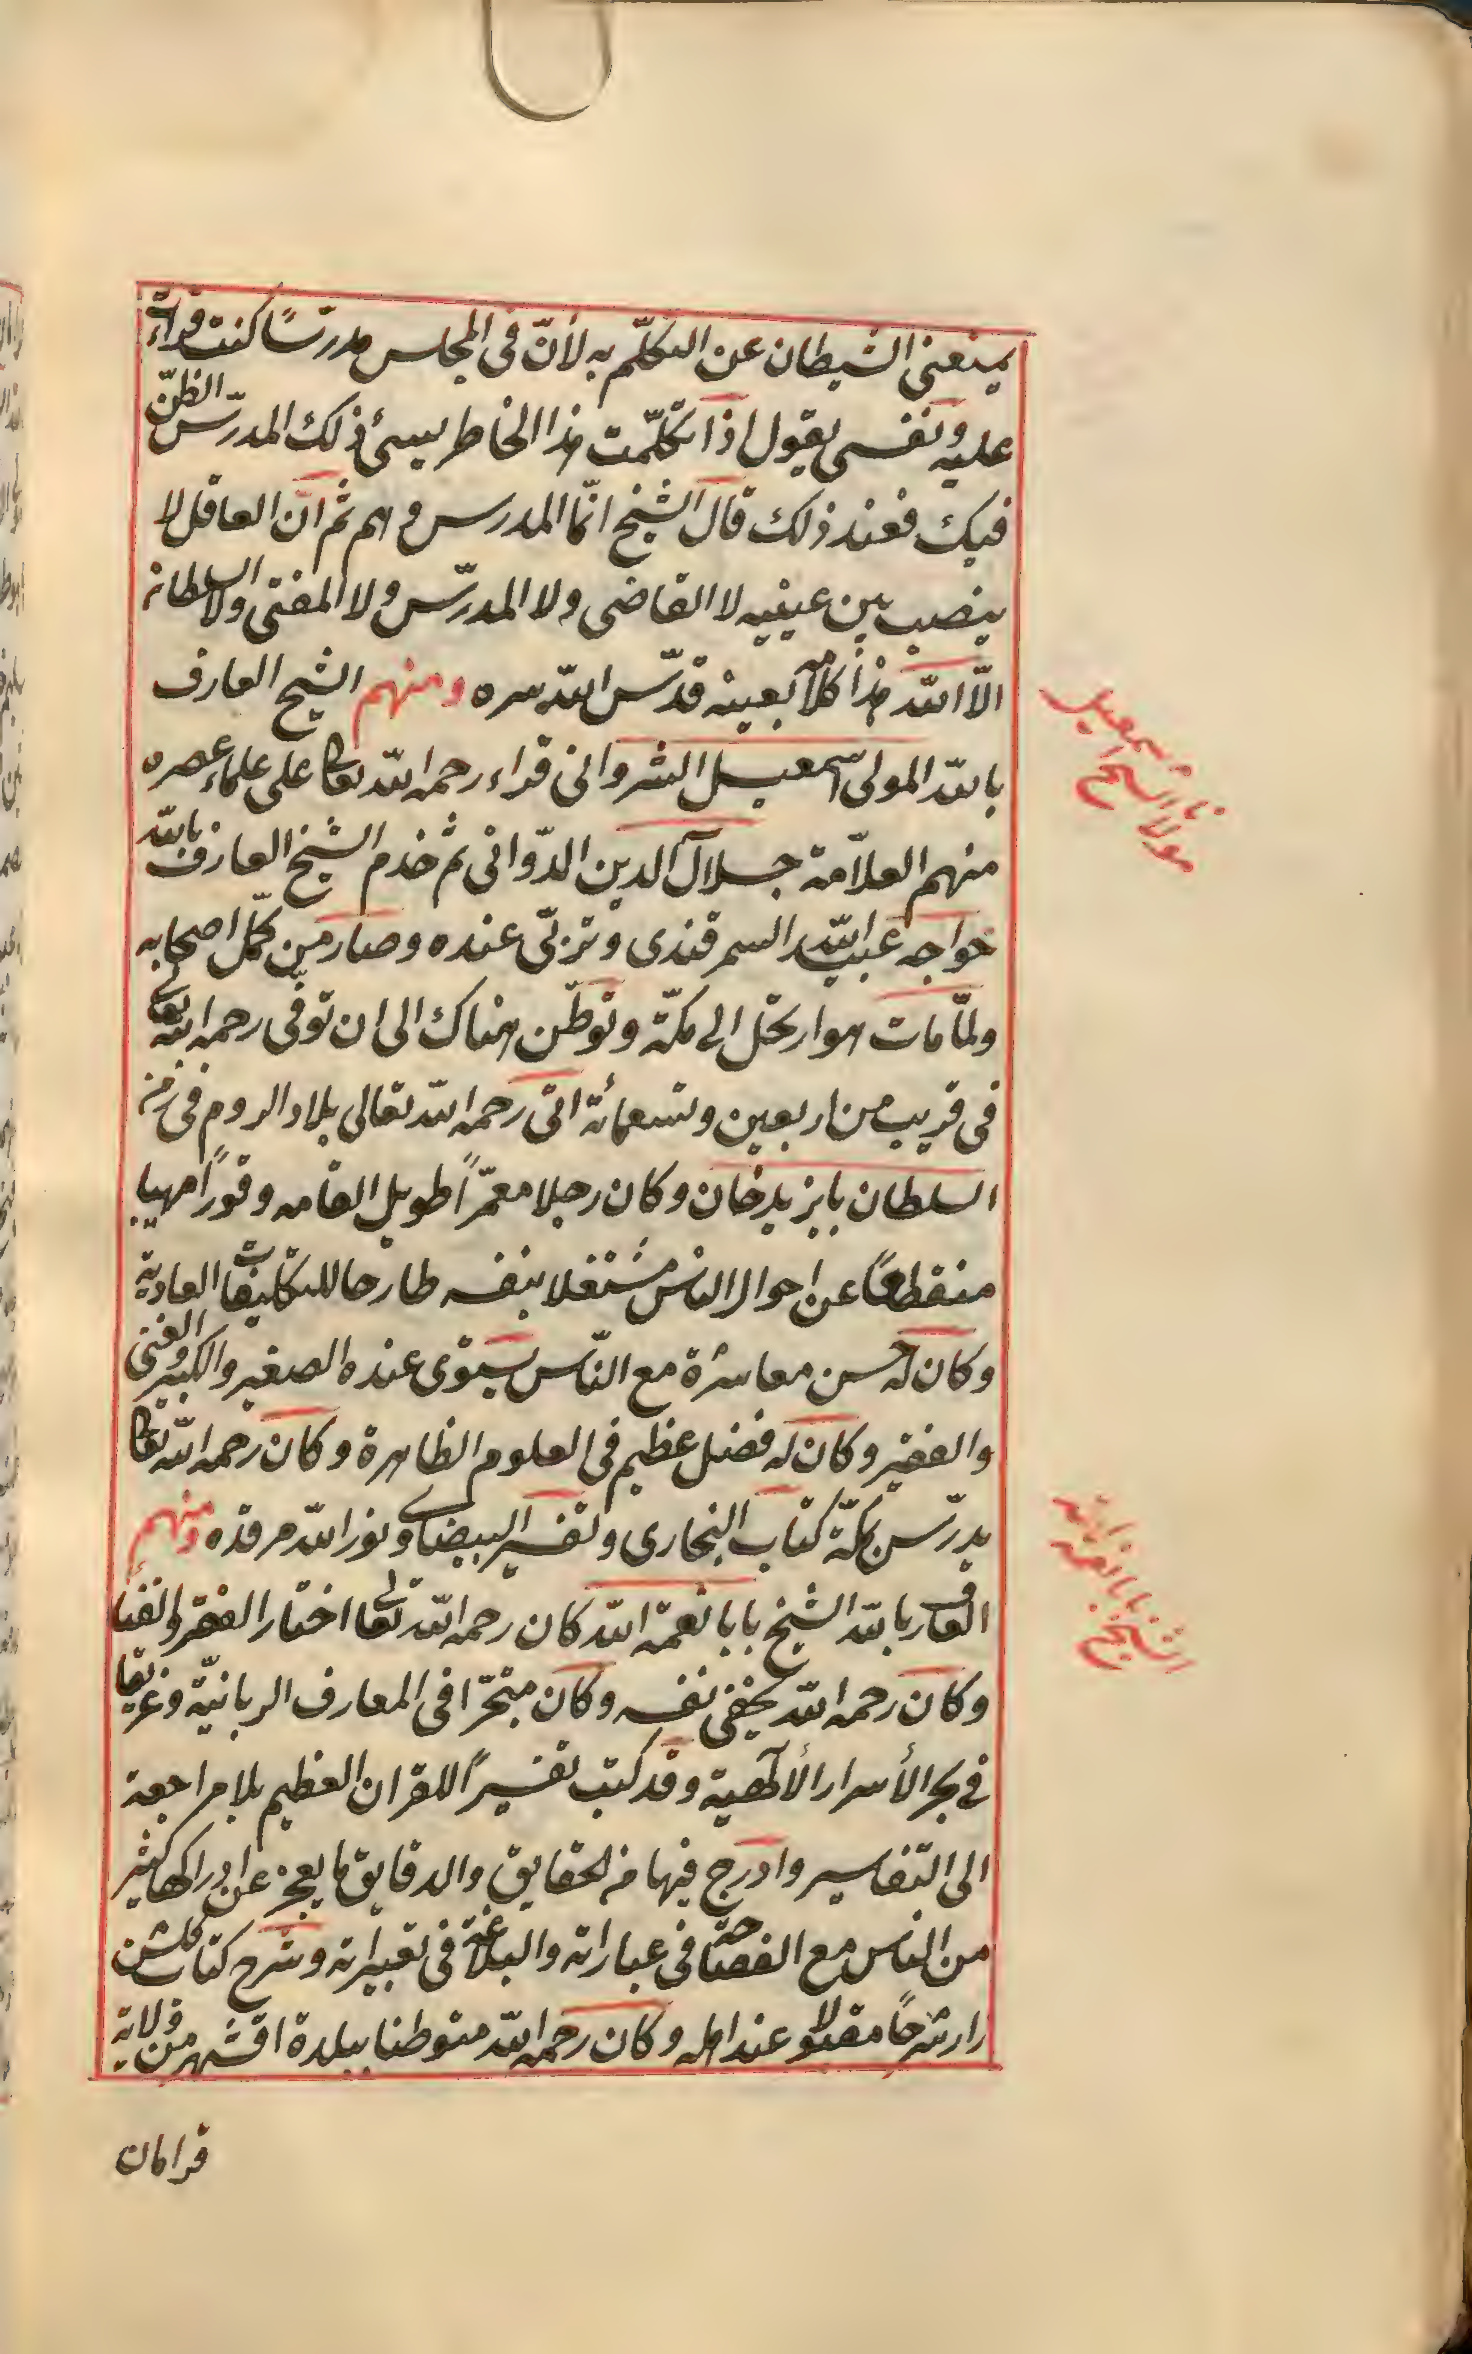 يمنعنى الشيطان عن التكلّم به لأنّ فى المجلس مدرّسًا كنت قراءت
عليه ونفسى يقول اذا تكلّمت هذا الخاطر يسئ ذلك المدرّس الظنّ
فيك فعند ذلك قال الشيخ انّما المدرس وهم ثم انّ العاقل لا
ينصب بين عينيه لا القاضى ولا المدرّس ولا المفتى ولا السلطان
الّا الله هذا كلامه بعينه قدّس الله سره ومنهم الشيخ العارف
بالله المولى اسمعيل الشروانى قراء رحمه الله تعا على علماء عصره
منهم العلاّمة جلال الدين الدّوانى ثم خدم الشيخ العارف بالله
خواجه عبيد الله السمرقندى وتربّى عنده وصار من كمّل اصحابه
ولمّا مات هو ارتحل الى مكّة وتوطّن هناك الى ان توفى رحمه الله تعالى
فى قريب من اربعين وتسعمائة اتى رحمه الله تعالى بلاد الروم فى زمن
السلطان بايزيد خان وكان رجلا معمّراً طويل القامه وقوراً مهيبا
منقطعاً عن احوال الناس مشتغلا بنفسه طارحا للتكليفات العادية
وكان له حسن معاشرة مع النّاس يستوى عنده الصغير والكبير والغنى
والفقير وكان له فضل عظيم فى العلوم الظاهرة وكان رحمه الله تعا
يدرّس بمكّة كتاب البخارى وتفسير البيضاوى ونور الله مرقده ومنهم
العارف بالله الشيخ بابا نعمة الله كان رحمه الله تعالى اختار الفقر والفنا
وكان رحمه الله يخفى نفسه وكان متبحّرا فى المعارف الربانيّة وغريقا
فى بحر الأسرار الألٰهية وقد كتب تفسيراً للقران العظيم بلا مراجعة
الى التفاسير وادرج فيها من الحقايق والدقايق ما يعجز عن ادراكها كثير
من الناس مع الفصاحة فى عباراته والبلاغة فى تعبيراته وشرح كتاب كلشن
راز شرحاً مقبولا عند اهله وكان رحمه الله متوطنا ببلدة اقشهر من ولاية
قرامان
مولانا الشيخ اسمعيل
الشيخ بابا نعمة الله